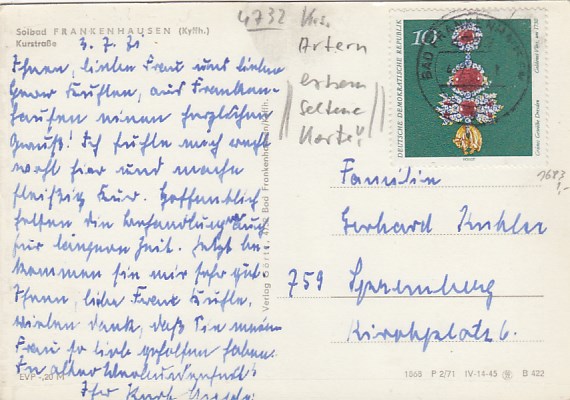 Solbad FRANKENHAUSEN (Kyffh.)
Kurstraße
3. 7. 71.
Ihnen, liebe Frau und lieber
Herr Kuhlen, aus Franken-
hausen einen herzlichen
Gruß! Ich fühle mich recht
wohl hier und mache
fleißig Kur. Hoffentlich
helfen die Behandlungen auch
für längere Zeit. Jetzt be-
kommen sie mir sehr gut.
Ihnen, liebe Frau
vielen Dank, daß Sie meiner
Frau so lieb geholfen haben.
In alter Verbundenheit!
Ihr Kurt
EVP -,20 M
4732 Krs.
Artern
extrem
seltene
Karte!!
Verlag Görtz, H.S. Bad Frankenhausen/Kyffh.
10
DEUTSCHE DEMOKRATISCHE REPUBLIK
Grünes Gewölbe Dresden
BAD FRANKENHAUSEN
1683
1,-
Familie
Gerhard
759 Spremberg
Kirchplatz 6.
1868 P 2/71 IV-14-45 B 422